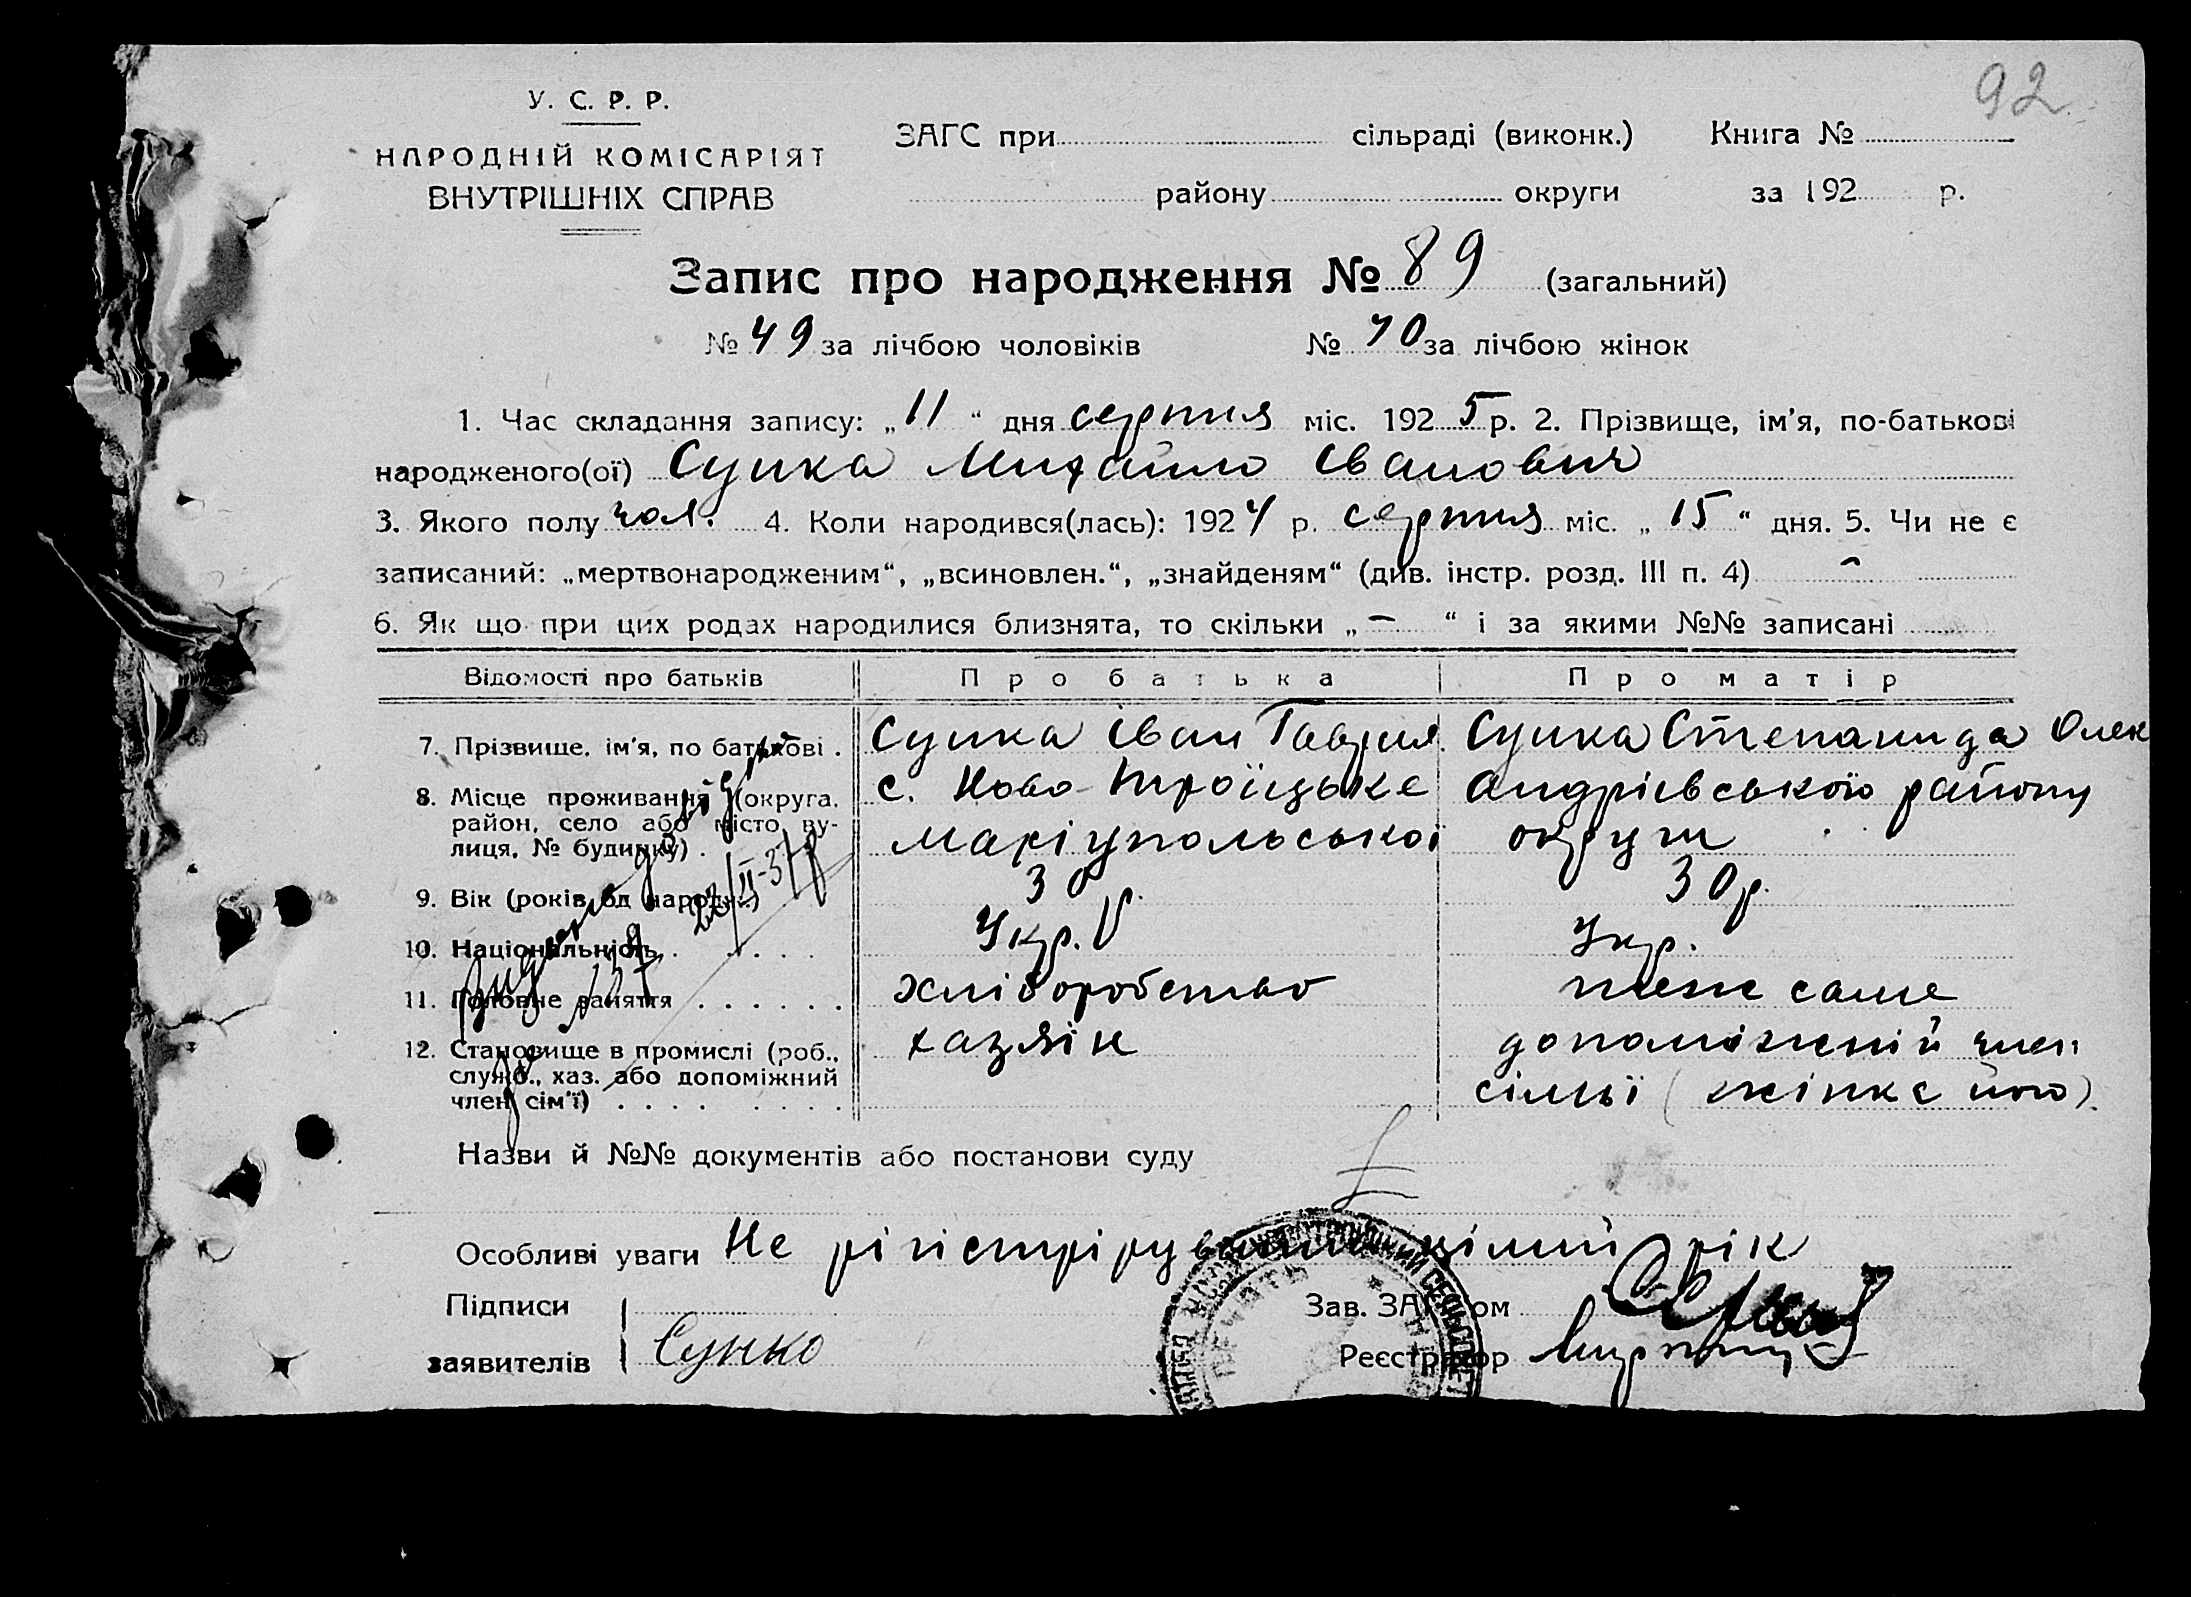 92
У. С. Р. Р.
НАРОДНІЙ КОМІСАРІЯТ
ВНУТРІШНІХ СПРАВ
ЗАГС при сільраді (виконк.) Книга №
району округи за 192 р.
Запис про народження № 89 (загальний)
№ 49 за лічбою чоловіків № 40 за лічбою жінок
1. Час складання запису: „11“ дня серпня міс. 1925 р. 2. Прізвище, ім'я, по-батькові
народженого(ої) Супка Михайло Іванович
3. Якого полу чол. 4. Коли народився(лась): 1924 р. серпня міс. „15“ дня. 5. Чи не є
записаний: „мертвонародженим“, „всиновлен.“, „знайденям“ (див. інстр. розд. III п. 4) -
6. Як що при цих родах народилися близнята, то скільки „-“ і за якими №№ записані
Відомості про батьків Про батька Про матір
7. Прізвище, ім'я, по батькові . Супка Іван Гаврил. Супка Степанида Олек
8. Місце проживання (округа, с. Ново-Троїцьке Андріївського району
район, село або місто, ву-
лиця, № будинку) . Маріупольської округи
9. Вік (років од народж.) 30 р. 30 р.
10. Національність . Укр. Укр.
11. Головне заняття хліборобство теж саме
12. Становище в промислі (роб., хазяїн допоміжній член
служб., хаз. або допоміжний
член сім'ї) сімьї (жінка його).
22/II-37р
Назви й №№ документів або постанови суду
Особливі уваги Не рігістрірували цілий рік
Підписи Зав. ЗАГСом
заявителів Сунко Реєстратор